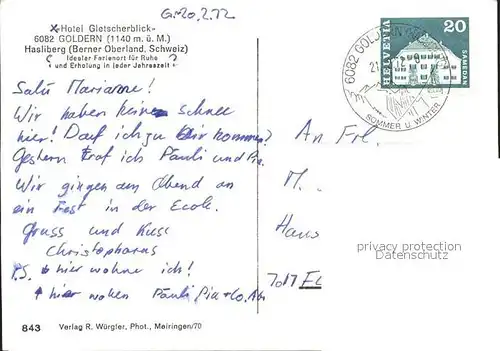 G. 20.2.72
x-Hotel Gletscherblick-
6082 GOLDERN (1140 m. ü. M.)
Hasliberg (Berner Oberland, Schweiz)
Idealer Ferienort für Ruhe
und Erholung in jeder Jahreszeit
Salü Marianne!
Wir haben keinen schnee
hier! Darf ich zu Dir kommen?
Gestern traf ich Pauli und Pia.
Wir gingen am Abend an
ein Fest in der Ecole.
Gruss und Kuss
Christophorus
P.S. hier wohne ich!
hier wohen Pauli Pia + Co.
843 Verlag R. Würgler, Phot., Meiringen/70
6082 GOLDERN
SOMMER U. WINTER
HELVETIA
20
SAMEDAN
An Frl.
M.
Haus
privacy protection
Datenschutz